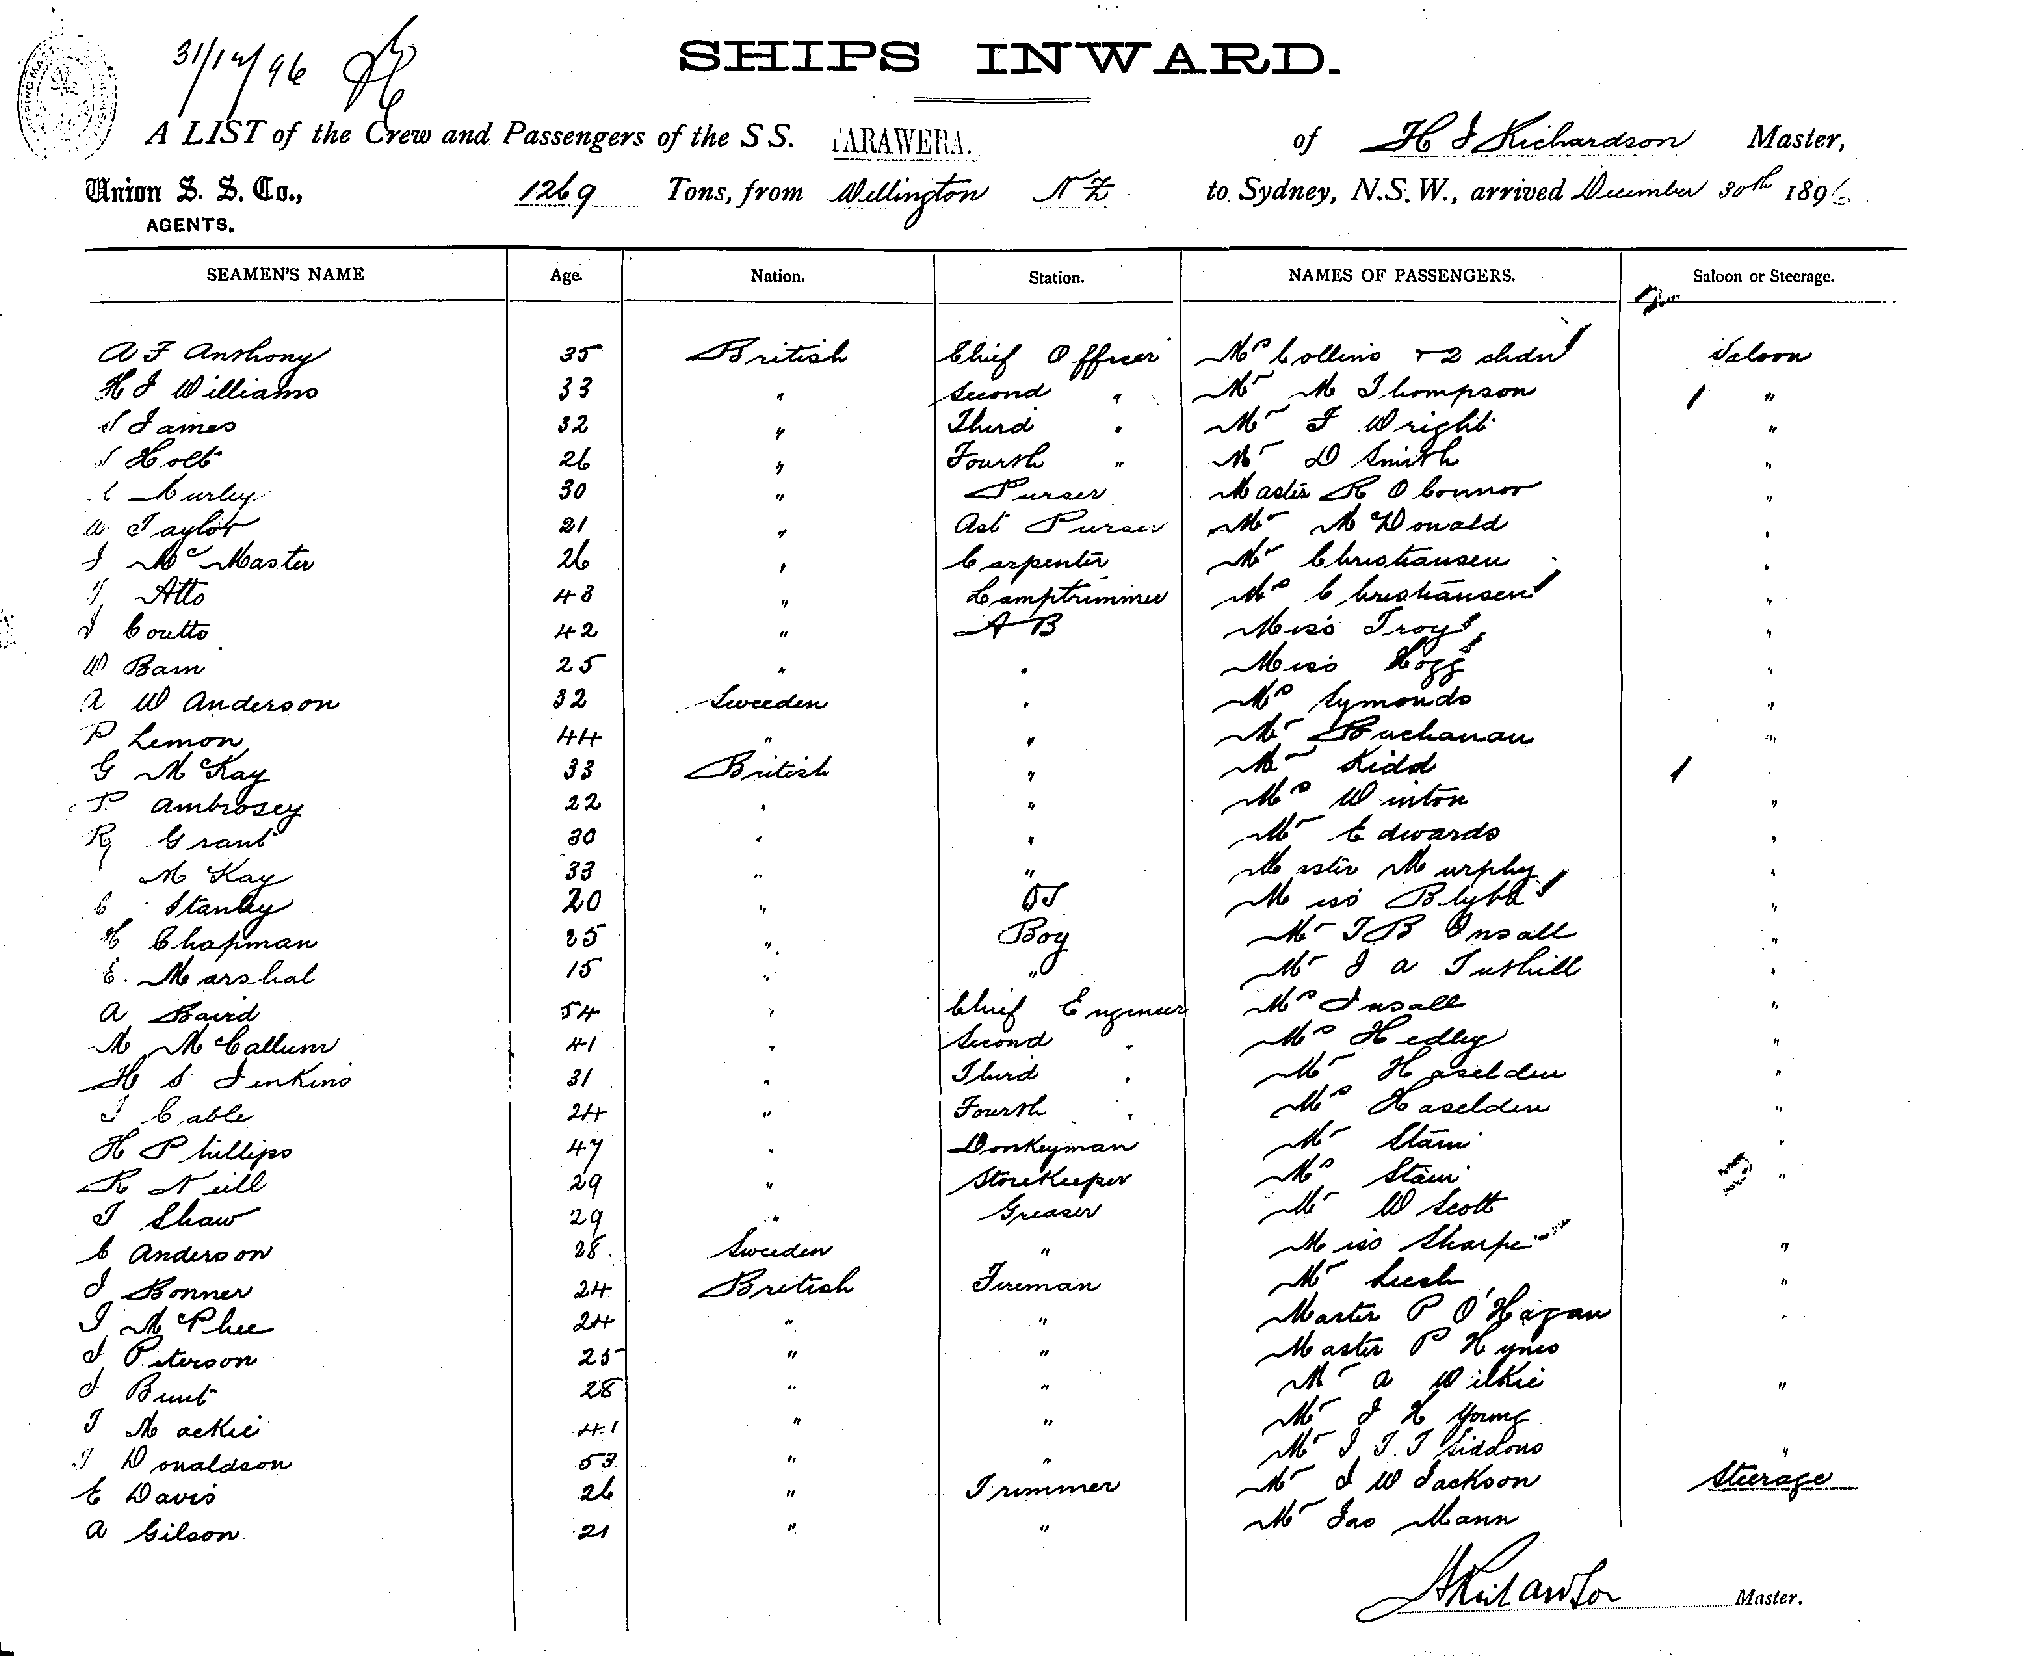 31/12/96
SHIPS INWARD.
A LIST of the Crew and Passengers of the S S. TARAWERA. of H J Richardson Master,
Union S. S. Co., 1269 Tons, from Wellington N Z to Sydney, N.S.W., arrived December 30th 1896
AGENTS.
SEAMEN'S NAME Age. Nation. Station. NAMES OF PASSENGERS. Saloon or Steerage.
A F Anthony 35 British Chief Officer Mrs Collins + 2 chdn Saloon
H J Williams 33 " Second " Mr M Thompson "
S James 32 " Third " Mr F Wright "
J Holt 26 " Fourth " Mr D Smith "
C Hurley 30 " Purser Master R O Connor "
A Taylor 21 " Ast Purser Mr McDonald "
J McMaster 26 " Carpenter Mr Christiansen "
T Atto 43 " Lamptrimmer Mrs Christiansen "
J Coutts 42 " A B Miss Troy "
W Bain 25 " " Miss Hogg "
A W Anderson 32 Sweeden " Mrs Symonds "
P Lemon 44 " " Mr Buchanan "
G McKay 33 British " Mr Kidd
P Ambrosey 22 " " Mrs Winton "
R Grant 30 " " Mr Edwards "
M Kay 33 " " Master Murphy "
C Stanley 20 " OS Miss Blyth "
H Chapman 25 " Boy Mr T B Insall "
E. Marshal 15 " " Mr J A Tuthill "
A Baird 54 " Chief Engineer Mrs Insall "
M McCallum 41 " Second " Mrs Hedley "
H S Jenkins 31 " Third " Mr Haselden "
J Cable 24 " Fourth " Mrs Haselden "
H Phillips 47 " Donkeyman Mr Stain "
R Neill 29 " Storekeeper Mrs Stain "
T Shaw 29 " Greaser Mr W Scott
C Anderson 28 Sweeden " Miss Sharpe "
J Bonner 24 British Fireman Mr Leech "
J McPhee 24 " " Master P O'Hagan "
J Peterson 25 " " Master P Hynes
J Bunt 28 " " Mr A Wilkie "
T Mackie 41 " " Mr J H Young
J Donaldson 53 " " Mr J T T Siddons "
E Davis 26 " Trimmer Mr J W Jackson Steerage
A Gilson 21 " " Mr Jas Mann
H Richardson Master.